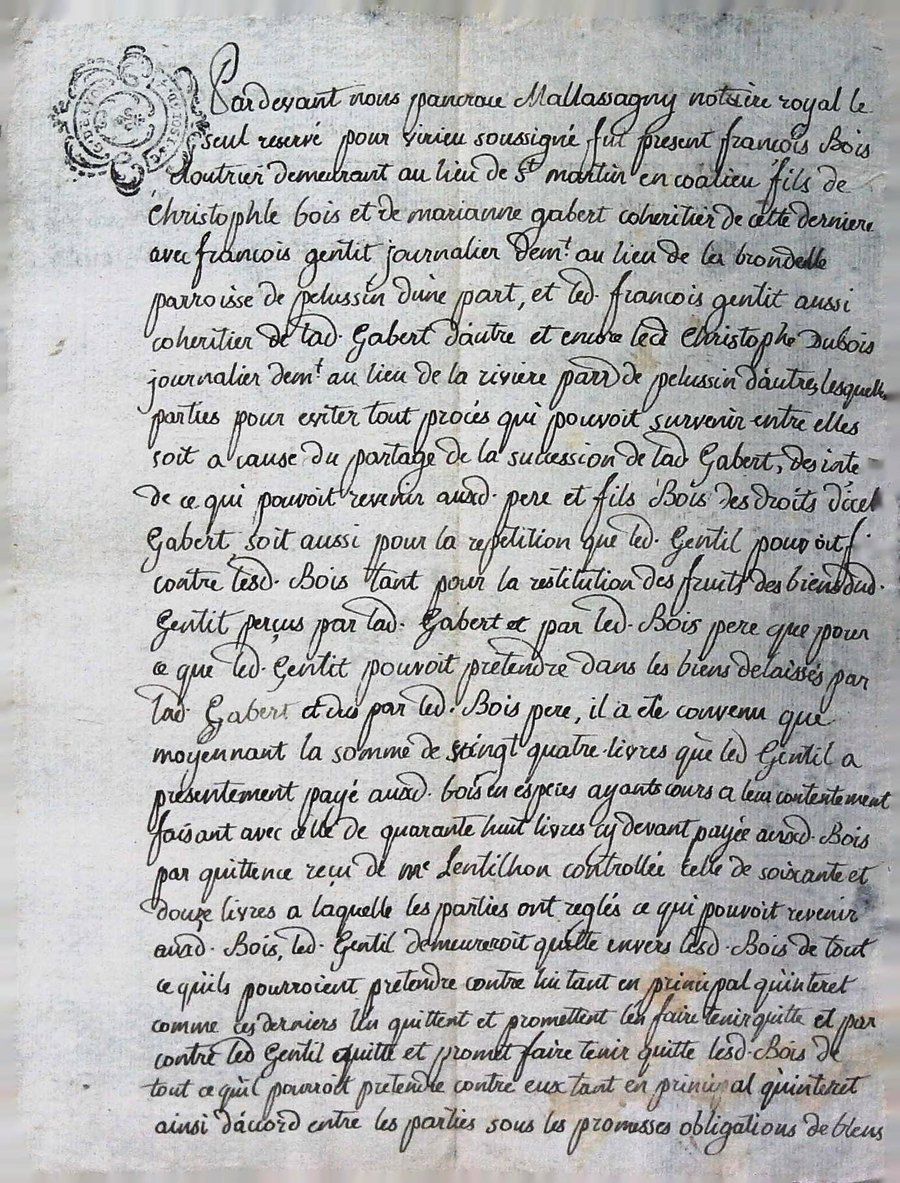 Pardevant nous pancrace Mallassagny notaire royal le
seul reservé pour virieu soussigné fut present françois Bois
cloutrier demeurant au lieu de St martin en coalieu fils de
Christophle bois et de marianne gabert coheritier de cette derniere
avec françois gentit journalier demt. au lieu de la brondelle
parroisse de pelussin dune part, et led. françois gentit aussi
coheritier de lad. Gabert dáutre et encore led Christophe Dubois
journalier demt. au lieu de la riviere parr de pelussin dáutres, lesquelles
parties pour eviter tout procés qui pouvoit survenir entre elles
soit a cause du partage de la sucession de lad Gabert,
de ce qui pouvoit revenir auxd. pere et fils Bois des droits
Gabert, soit aussi pour la repetition que led. Gentil pouvoit
contre lesd. Bois tant pour la restitution des fruits des biens dud.
Gentit perçus par lad. Gabert et par led. Bois pere que pour
ce que led. Gentit pouvoit pretendre dans les biens delaissés par
lad. Gabert et dus par led. Bois pere, il a eté convenu que
moyennant la somme de vingt quatre livres que led Gentil a
presentement payé auxd. bois en especes ayants cours a leur contentement
faisant avec celle de quarante huit livres cy devant payée auxd. Bois
par quittence reçu de me Lentilhon controllée celle de soixante et
douze livres a laquelle les parties ont reglés ce qui pouvoit revenir
auxd. Bois, led. Gentil demeureroit quitte envers lesd. Bois de tout
ce quils pourroient pretendre contre lui tant en principal quinteret
comme ces derniers len quittent et promettent len faire tenir quitte et par
contre led Gentil quitte et promet faire tenir quitte lesd. Bois de
tout ce quil pourroit pretendre contre eux tant en principal quinteret
ainsi dácord entre les parties sous les promesses obligations de biens